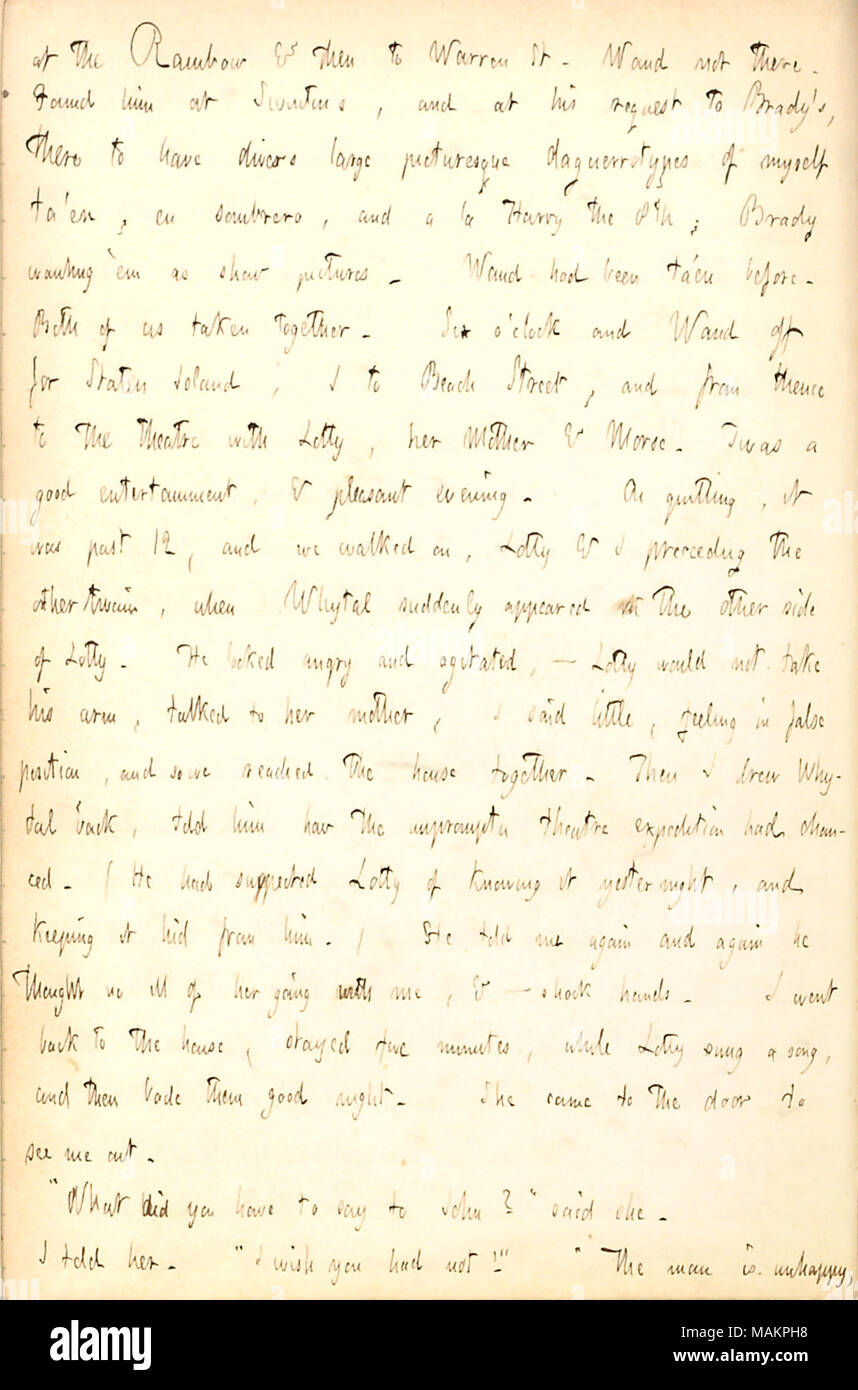 at the Rainbow & then to Warren St. Waud not there.
Found him at Swintons, and at his request to Brady's,
there to have divers large picturesque daguerrotypes of myself
ta'en, en sombrero, and a la Harry the 8th; Brady
wanting 'em as show pictures. Waud had been ta'en before.
Both of us taken together. Six o'clock and Waud off
for Staten Island, I to Beach Street, and from thence
to the theatre with Lotty, her Mother & Morse. Twas a
good entertainment, & pleasant evening. On quitting, it
was past 12, and we walked on, Lotty & I preceding the
other twain, when Whytal suddenly appeared at the other side
of Lotty. He looked angry and agitated, — Lotty would not take
his arm, talked to her mother, I said little, feeling in false
position, and so we reached the house together. Then I drew Why-
tal back, told him how the unpromptu theatre expedition had chan-
ced. (He had suspected Lotty of knowing it yesternight, and
keeping it hid from him.) He told me again and again he
thought no ill of her going with me, & — shook hands. I went
back to the house, stayed five minutes, while Lotty sung a song,
and then bade them good night. She came to the door to
see me out.
"What did you have to say to John?" said she.
I told her. "I wish you had not!" "The man is unhappy,
alamy
Image ID: MAKPH8
www.alamy.com